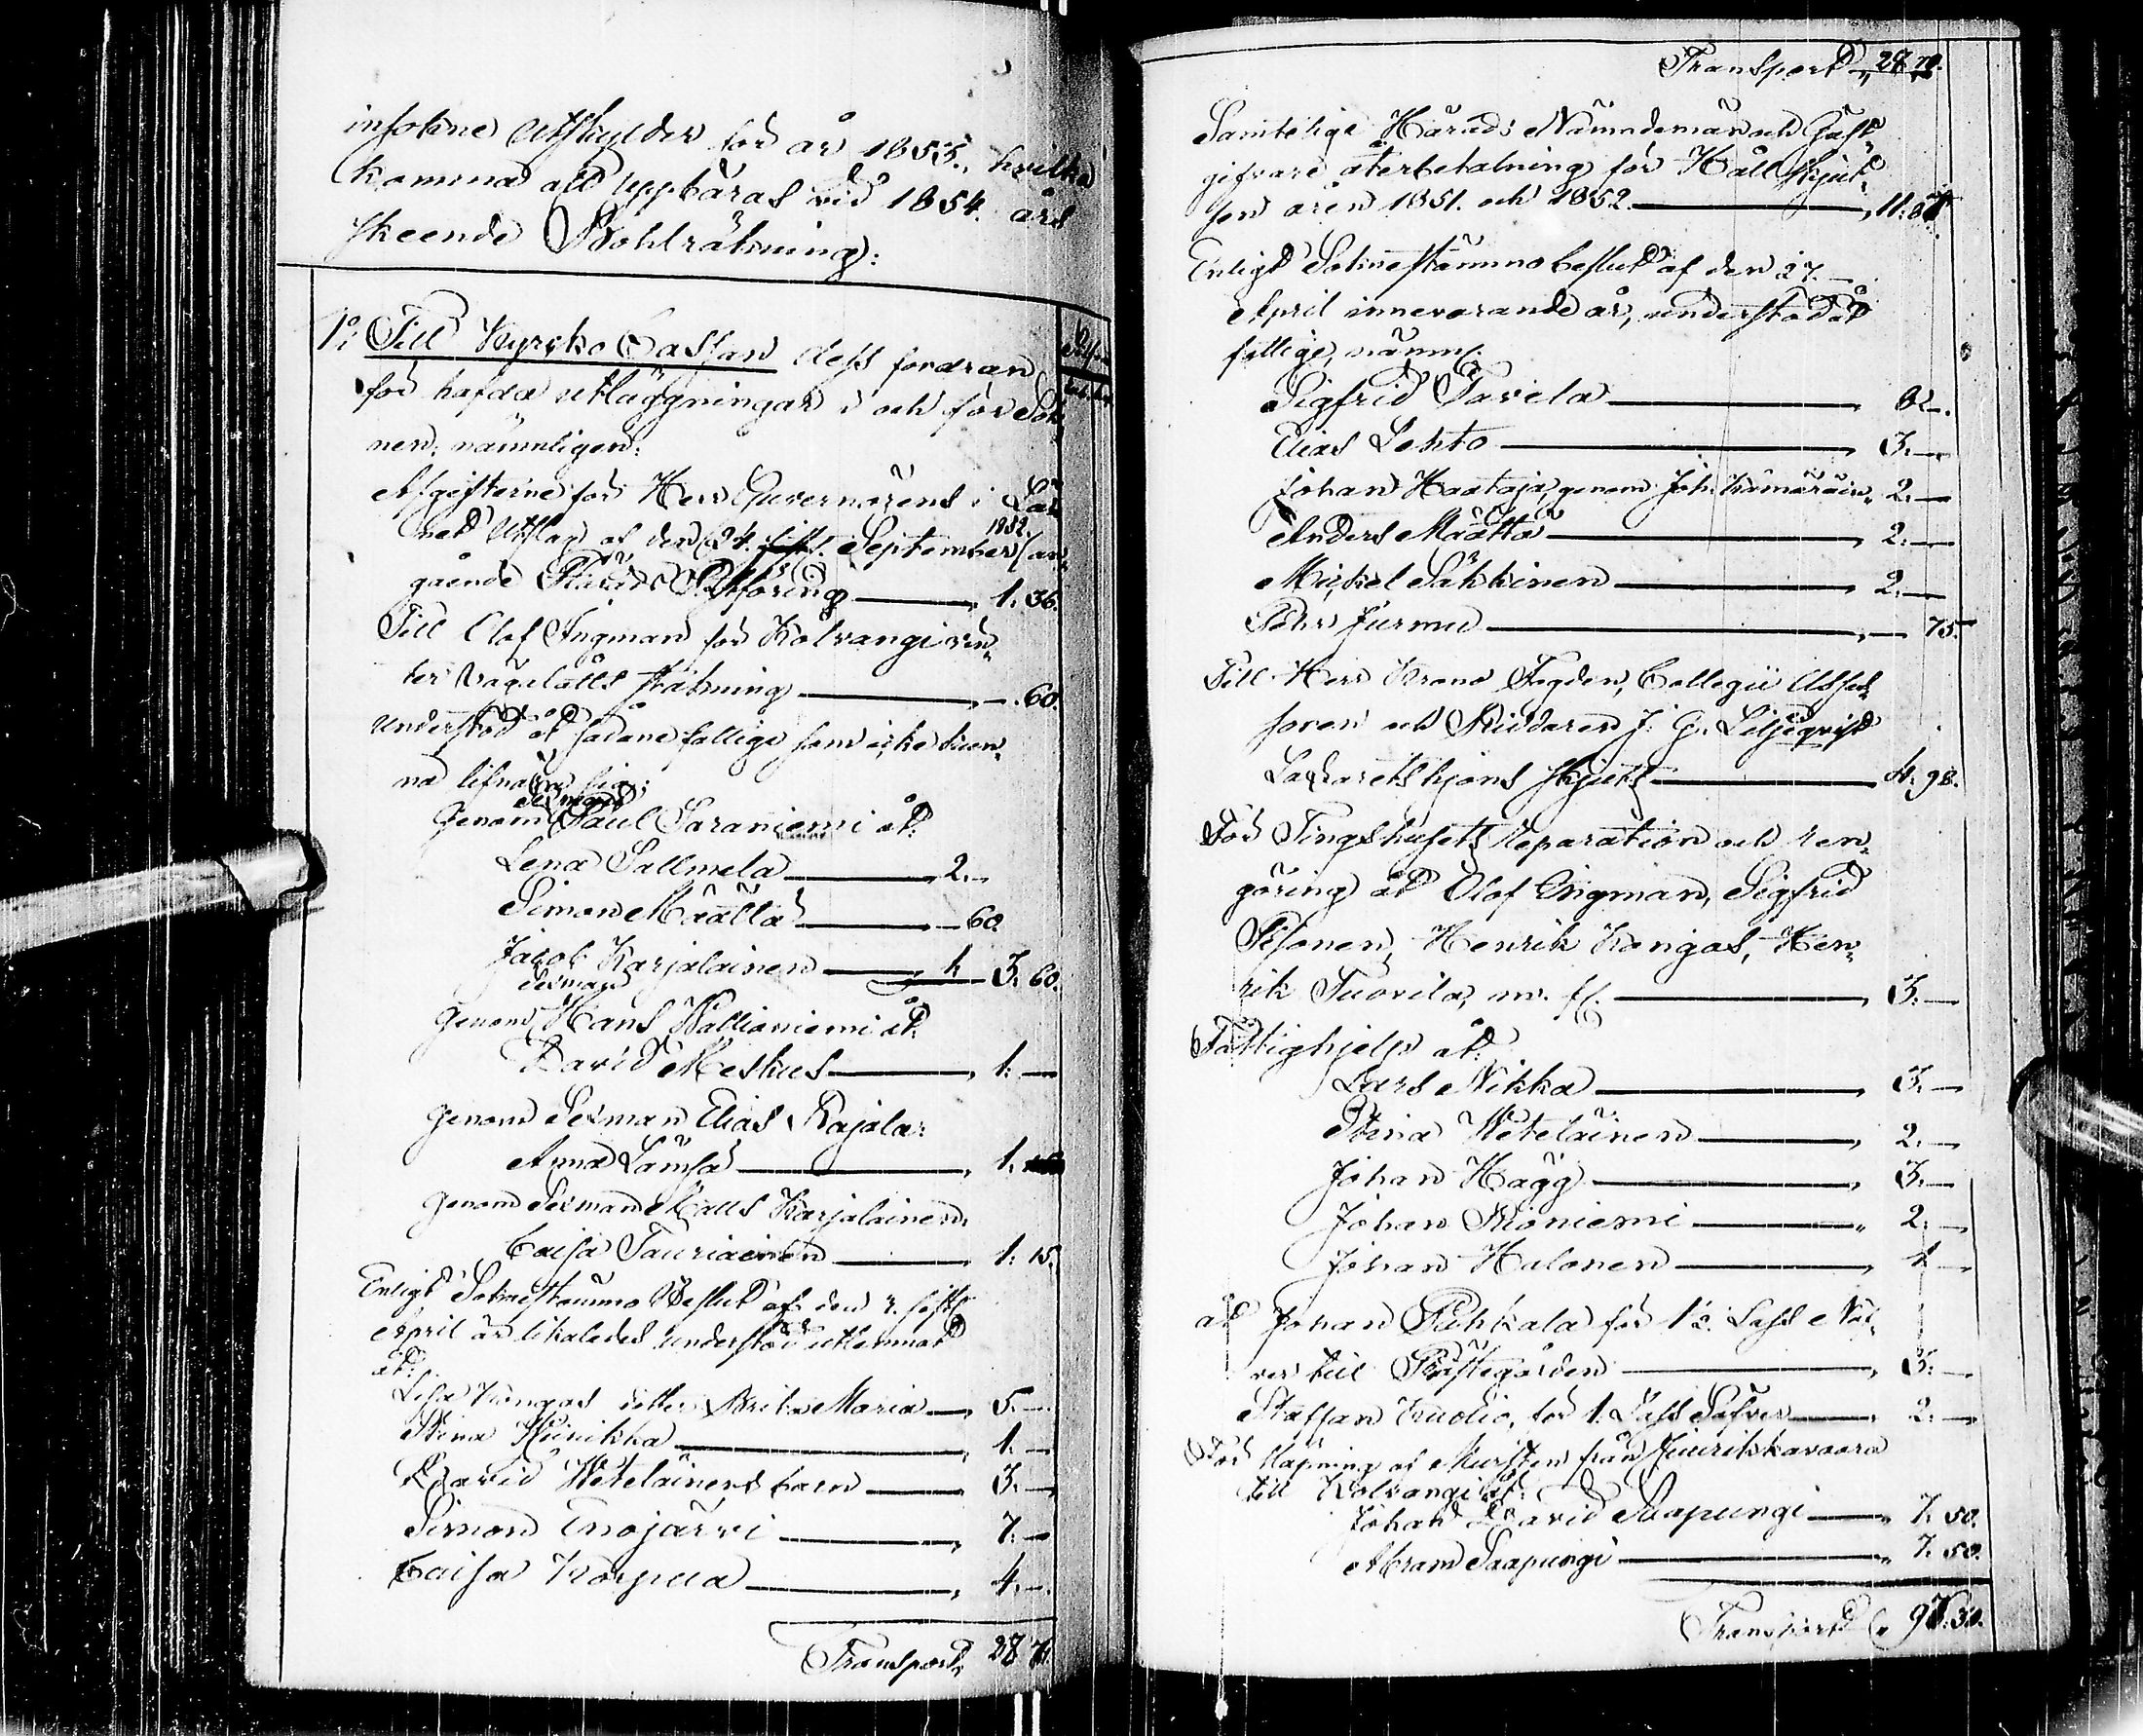 insokne Utskylder för år 1853., hvilka
komma att uppbäras vid 1854. års
skeende Bohlräkning:
1o: Till Kyrko Cassan dess fordran
för hafda utläggningar i och för Sok-
nen, nämnligen:
Afgifterne för Herr Guvernörens i Lä-
net Utslag af den 24. September 1852. an-
gående 1. 36.
Till Olof Ingman för Kolvangi vin-
ter vägalätts 60.
Understöd åt sådane fattige som icke kun-
na lifnära sig:
Genom Sexman Paul Saraniemi åt:
Lena Sallmela 2. —
Simon Määttä — 60
Jacob Karjalainen 1. 3. 60.
Genom Sexman Hans Kallioniemi åt:
David Meskus 1. —
Genom Sexman Elias Rajala:
Anna Lämsä 1.
Genom Sexman Matts Karjalainen:
Caisa Tauriainen 1. 15.
Enligt Sokne stämmo Beslut af den
April är likaledes understöd utlemnat
åt:
Lisa Kangas dotter Brita Maria 5. —
Stina Hiirikka 1. —
David Weteläinens barn 3. —
Simon Enojärvi 7. —
Caisa Korpua 4. —
Transport 28 71.
Transport 28 70.
Samtelige Härads Nämndemän och Gäst-
gifvare återbetalning för Håll skjut-
sen åren 1851. och 1852. 11. 87
Enligt Sokne stämmo beslut af den 27.
April innevarande år, understöd åt
fattige, nämnl.
Sigfrid Tavela 6. —
Elias Lehto 3. —
Johan Haataja, genom Joh. Kämäräin. 2. —
Anders Määttä 2. —
Mickel Säkkinen 2. —
Petter Jurmu — 75.
Till Herr Krono Fogden, Collegii Asses-
soren och Riddaren J. G. Liljeqvist
Lazaretshjons skjuts 4. 98.
För Tingshusets Reparation och ren-
göring åt Olof Engman, Sigfrid
Pesonen, Henrik Kangas, Hen-
rik Tuovila, m. fl. 3. —
Fattighjelp åt:
Lars Nikka 3. —
Stina Weteläinen 2. —
Johan Hägg 3. —
Johan Moniemi 2. —
Johan Halonen 1 —
åt Johan Puhkala för 1½ Lass Näf-
ver till Prästegården 3. —
Staffan Kuolio, för 1. Lass Näfver 2. —
För släpning af Mursten från Hiirikkavaara
till Kolvangi åt:
Johan David Saapungi 7. 50.
Abram Saapungi 7. 50.
Transport 97. 30.